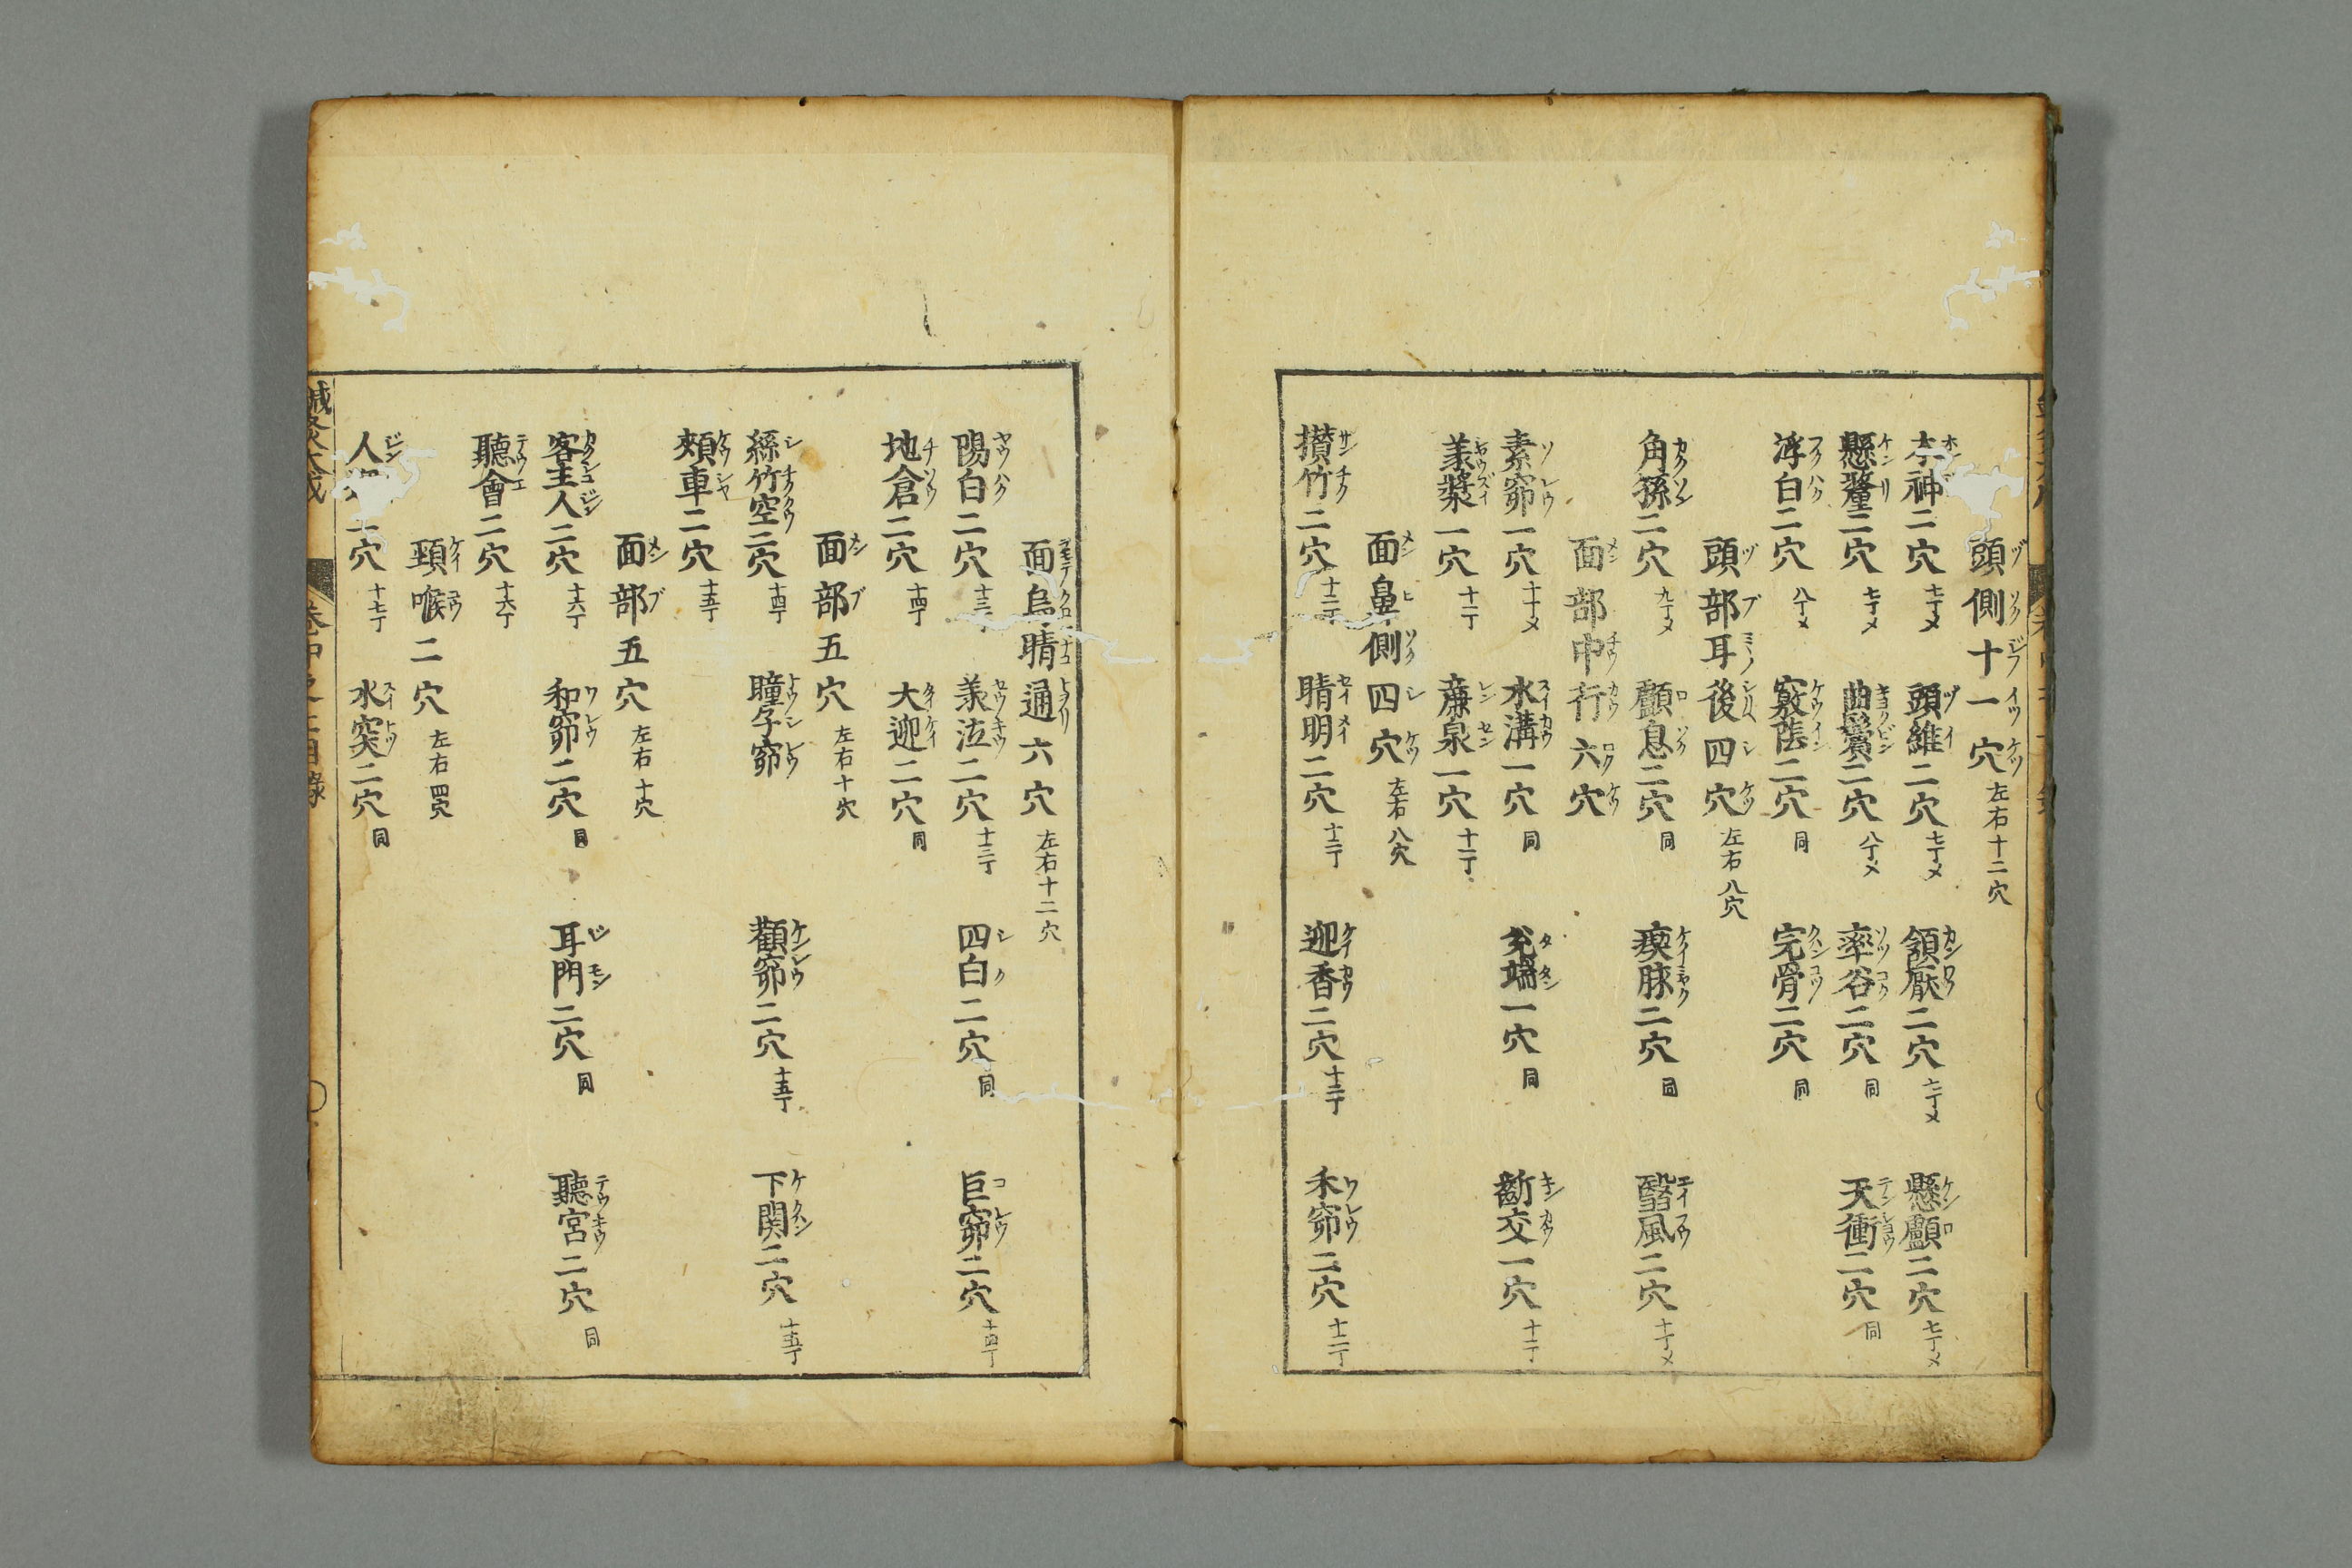 頭側十一穴 左右十二穴
本神二穴 七丁メ 頭維二穴 七丁メ 頷厭二穴 七丁メ 懸顱二穴 七丁メ
懸釐二穴 七丁メ 曲鬢二穴 八丁メ 率谷二穴 同 天衝二穴 同
浮白二穴 八丁メ 竅陰二穴 同 完骨二穴 同
頭部耳後四穴 左右八穴
角孫二穴 九丁メ 顱息二穴 同 瘈脉二穴 同 翳風二穴 十丁メ
面部中行六穴
素窌一穴 十丁メ 水溝一穴 同 兊端一穴 同 齗交一穴 十一丁
羕漿一穴 十一丁 廉泉一穴 十一丁
面鼻側四穴 左右八穴
攅竹二穴 十二丁 睛明二穴 十二丁 迎香二穴 十二丁 禾窌二穴 十二丁
面烏睛通六穴 左右十二穴
陽白二穴 十三丁 羕泣二穴 十三丁 四白二穴 同 巨窌二穴 十四丁
地倉二穴 十四丁 大迎二穴 同
面部五穴 左右十穴
絲竹空二穴 十四丁 瞳子窌 顴窌二穴 十五丁 下関二穴 十五丁
頰車二穴 十五丁
面部五穴 左右十穴
客主人二穴 十六丁 和窌二穴 同 耳門二穴 同 聽宮二穴 同
聽會二穴 十六丁
頸喉二穴 左右四穴
人 二穴 十七丁 水突二穴 同